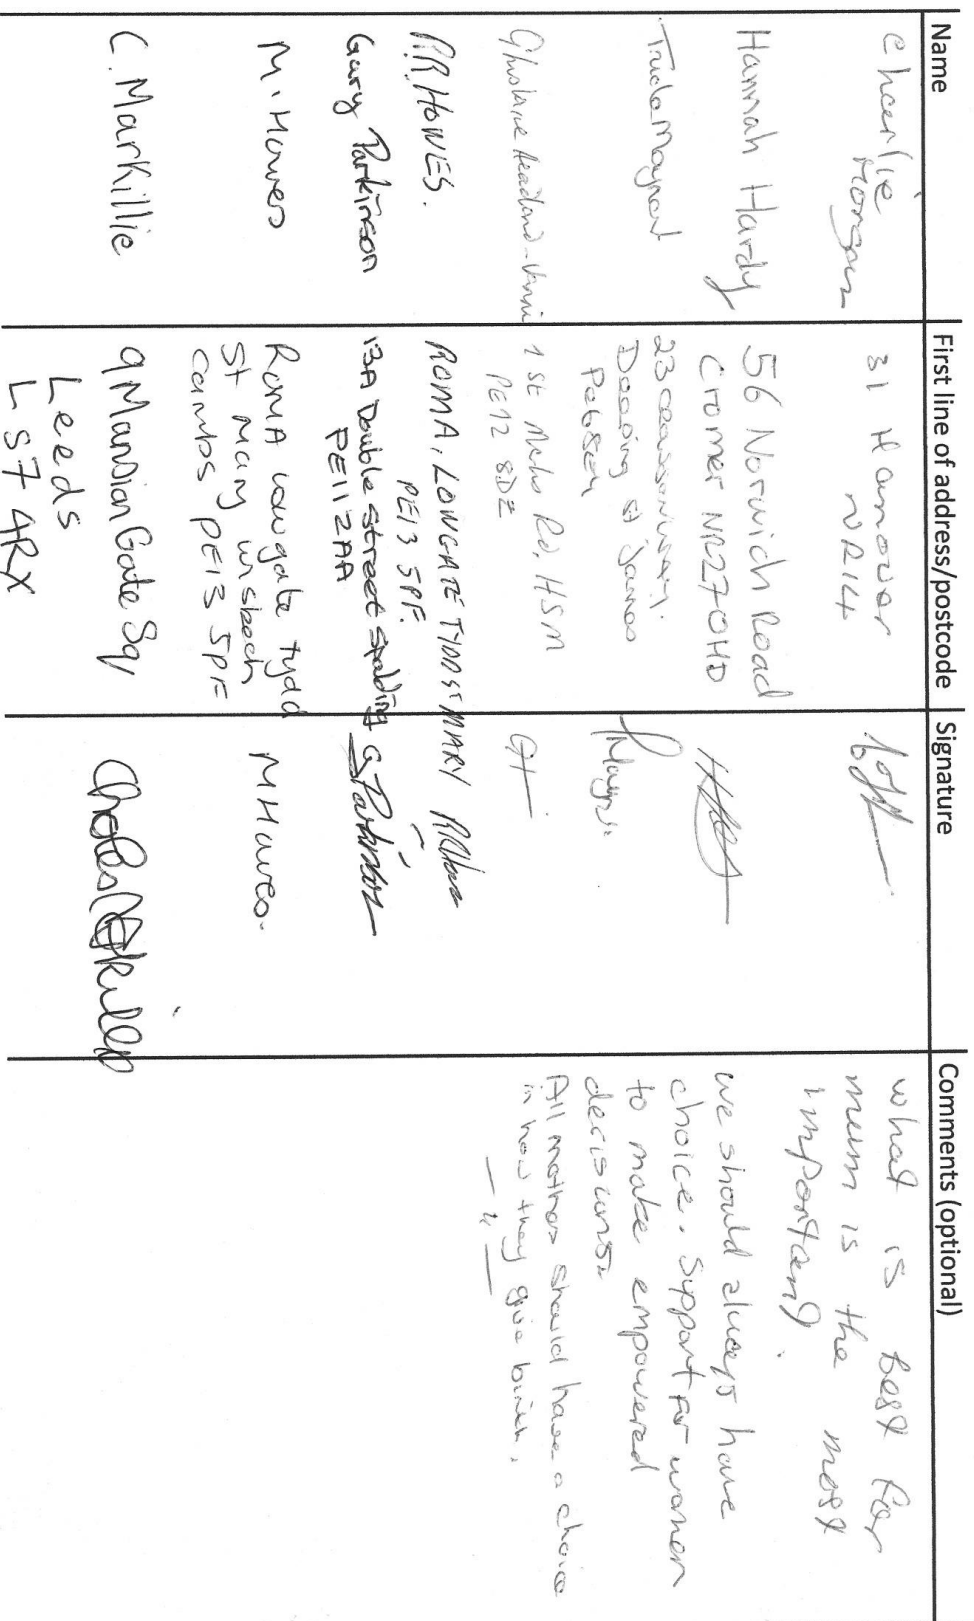 Name First line of address/postcode Signature Comments (optional)
Charlie
31 Hanover
NR14
what is best for
mum is the most
important.
Hannah Hardy
56 Norwich Road
Cromer NR27 0HD
we should always have
choice. Support for women
to make empowered
decisions.
Maynard
Deeping St James
1st
PE12 8DZ
GH
All mothers should have a choice
in how they give birth.
R.R. HOWES.
ROMA, LOWGATE TYDD ST MARY
PE13 5PF.
Gary Parkinson
13A Double Street Spalding
PE11 2AA
G Parkinson
M. Howes
ROMA Lowgate tydd
St Mary wisbech
Cambs PE13 5PF
M Howes.
C. Markillie
9 Mansion Gate Sq,
Leeds
LS7 4RX